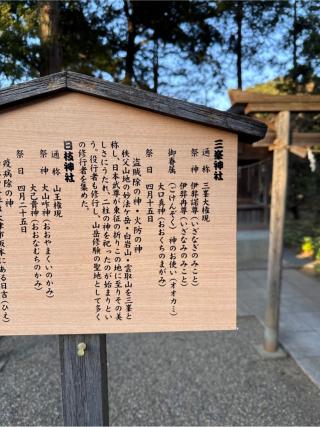 三峯神社
通称 三峯大権現
祭神 伊弉諾尊（いざなぎのみこと）
伊弉冉尊（いざなみのみこと）
御眷属（ごけんぞく）神のお使い（オオカミ）
大口真神（おおくちのまがみ）
祭日 四月十五日
盗賊除の神・火防の神
秩父山地の妙法ケ岳・白岩山・雲取山を三峯と
称し、日本武尊が東征の折りこの地に至りその美
しさにうたれ、二柱の神を祀ったのが始まりとい
う。役行者も修行し、山岳修験の聖地として多く
の修行者を集めた。
日枝神社
通称 山王権現
祭神 大山咋神（おおやまくいのかみ）
大己貴神（おおなむちのかみ）
祭日 四月二十五日
疫病除の神
大津市坂本にある日吉（ひえ）